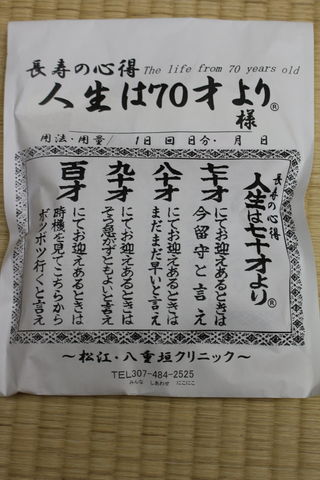 長寿の心得 The life from 70 years old
人生は70才より®
様
用法・用量/ 1日 回 日分・ 月 日
長寿の心得
人生は七十才より®
七十才 にてお迎えあるときは
今留守と言え
八十才 にてお迎えあるときは
まだまだ早いと言え
九十才 にてお迎えあるときは
そう急がずともよいと言え
百才 にてお迎えあるときは
時機を見てこちらから
ボツボツ行くと言え
～松江・八重垣クリニック～
TEL307-484-2525
みんな しあわせ にこにこ